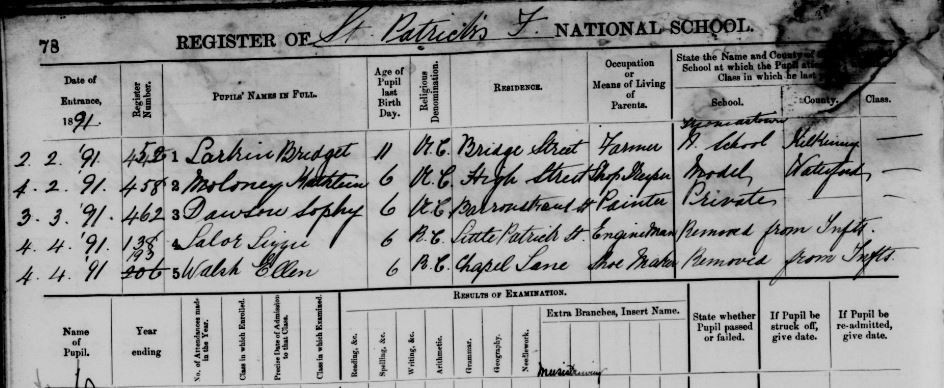 78 REGISTER OF St. Patrick's F. NATIONAL SCHOOL.
Date of Entrance, 1891. Register Number. PUPILS' NAMES IN FULL. Age of Pupil last Birth Day. Religious Denomination. RESIDENCE. Occupation or Means of Living of Parents. State the Name and County of School at which the Pupil Class in which he last
School. County. Class.
2. 2. '91 1 Larkin Bridget 11 R.C. Bridge Street Farmer N. School Kilkenny —
4. 2. '91. 458 2 Moloney Kathleen 6 R.C. High Street Shop Keeper Model, Waterford, —
3. 3. '91 462 3 Dawson Sophy 6 R.C. Barronstrand St Painter Private —
4. 4. '91. 138 4 Lalor Lizzie 6 R.C. Little Patrick St. Engine Man Removed from Infts.
193
4. 4. '91 206 5 Walsh Ellen 6 R.C. Chapel Lane Shoe Maker Removed from Infts.
RESULTS OF EXAMINATION.
Name of Pupil. Year ending No. of Attendances made in the Year. Class in which Enrolled. Precise Date of Admission to that Class. Class in which Examined. Reading, &c. Spelling, &c. Writing, &c. Arithmetic. Grammar. Geography. Needlework. Extra Branches, Insert Name. State whether Pupil passed or failed. If Pupil be struck off, give date. If Pupil be re-admitted, give date.
Music Drawing